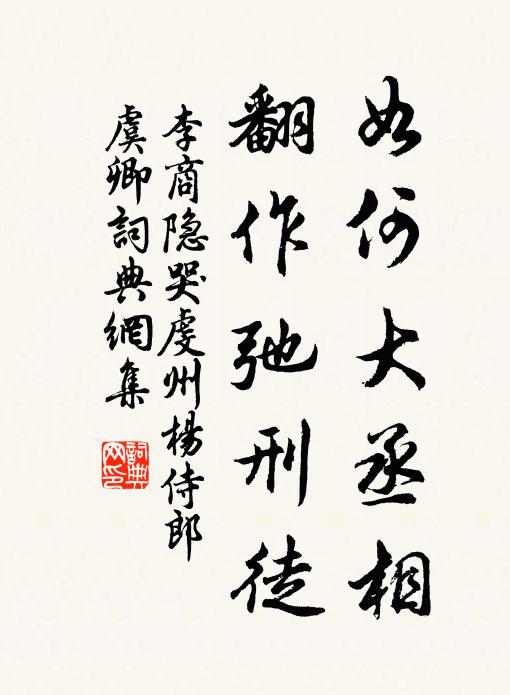 如何大丞相
翻作弛刑徒
李商隐哭虔州楊侍郎
虞卿詞典網集
詞典网印